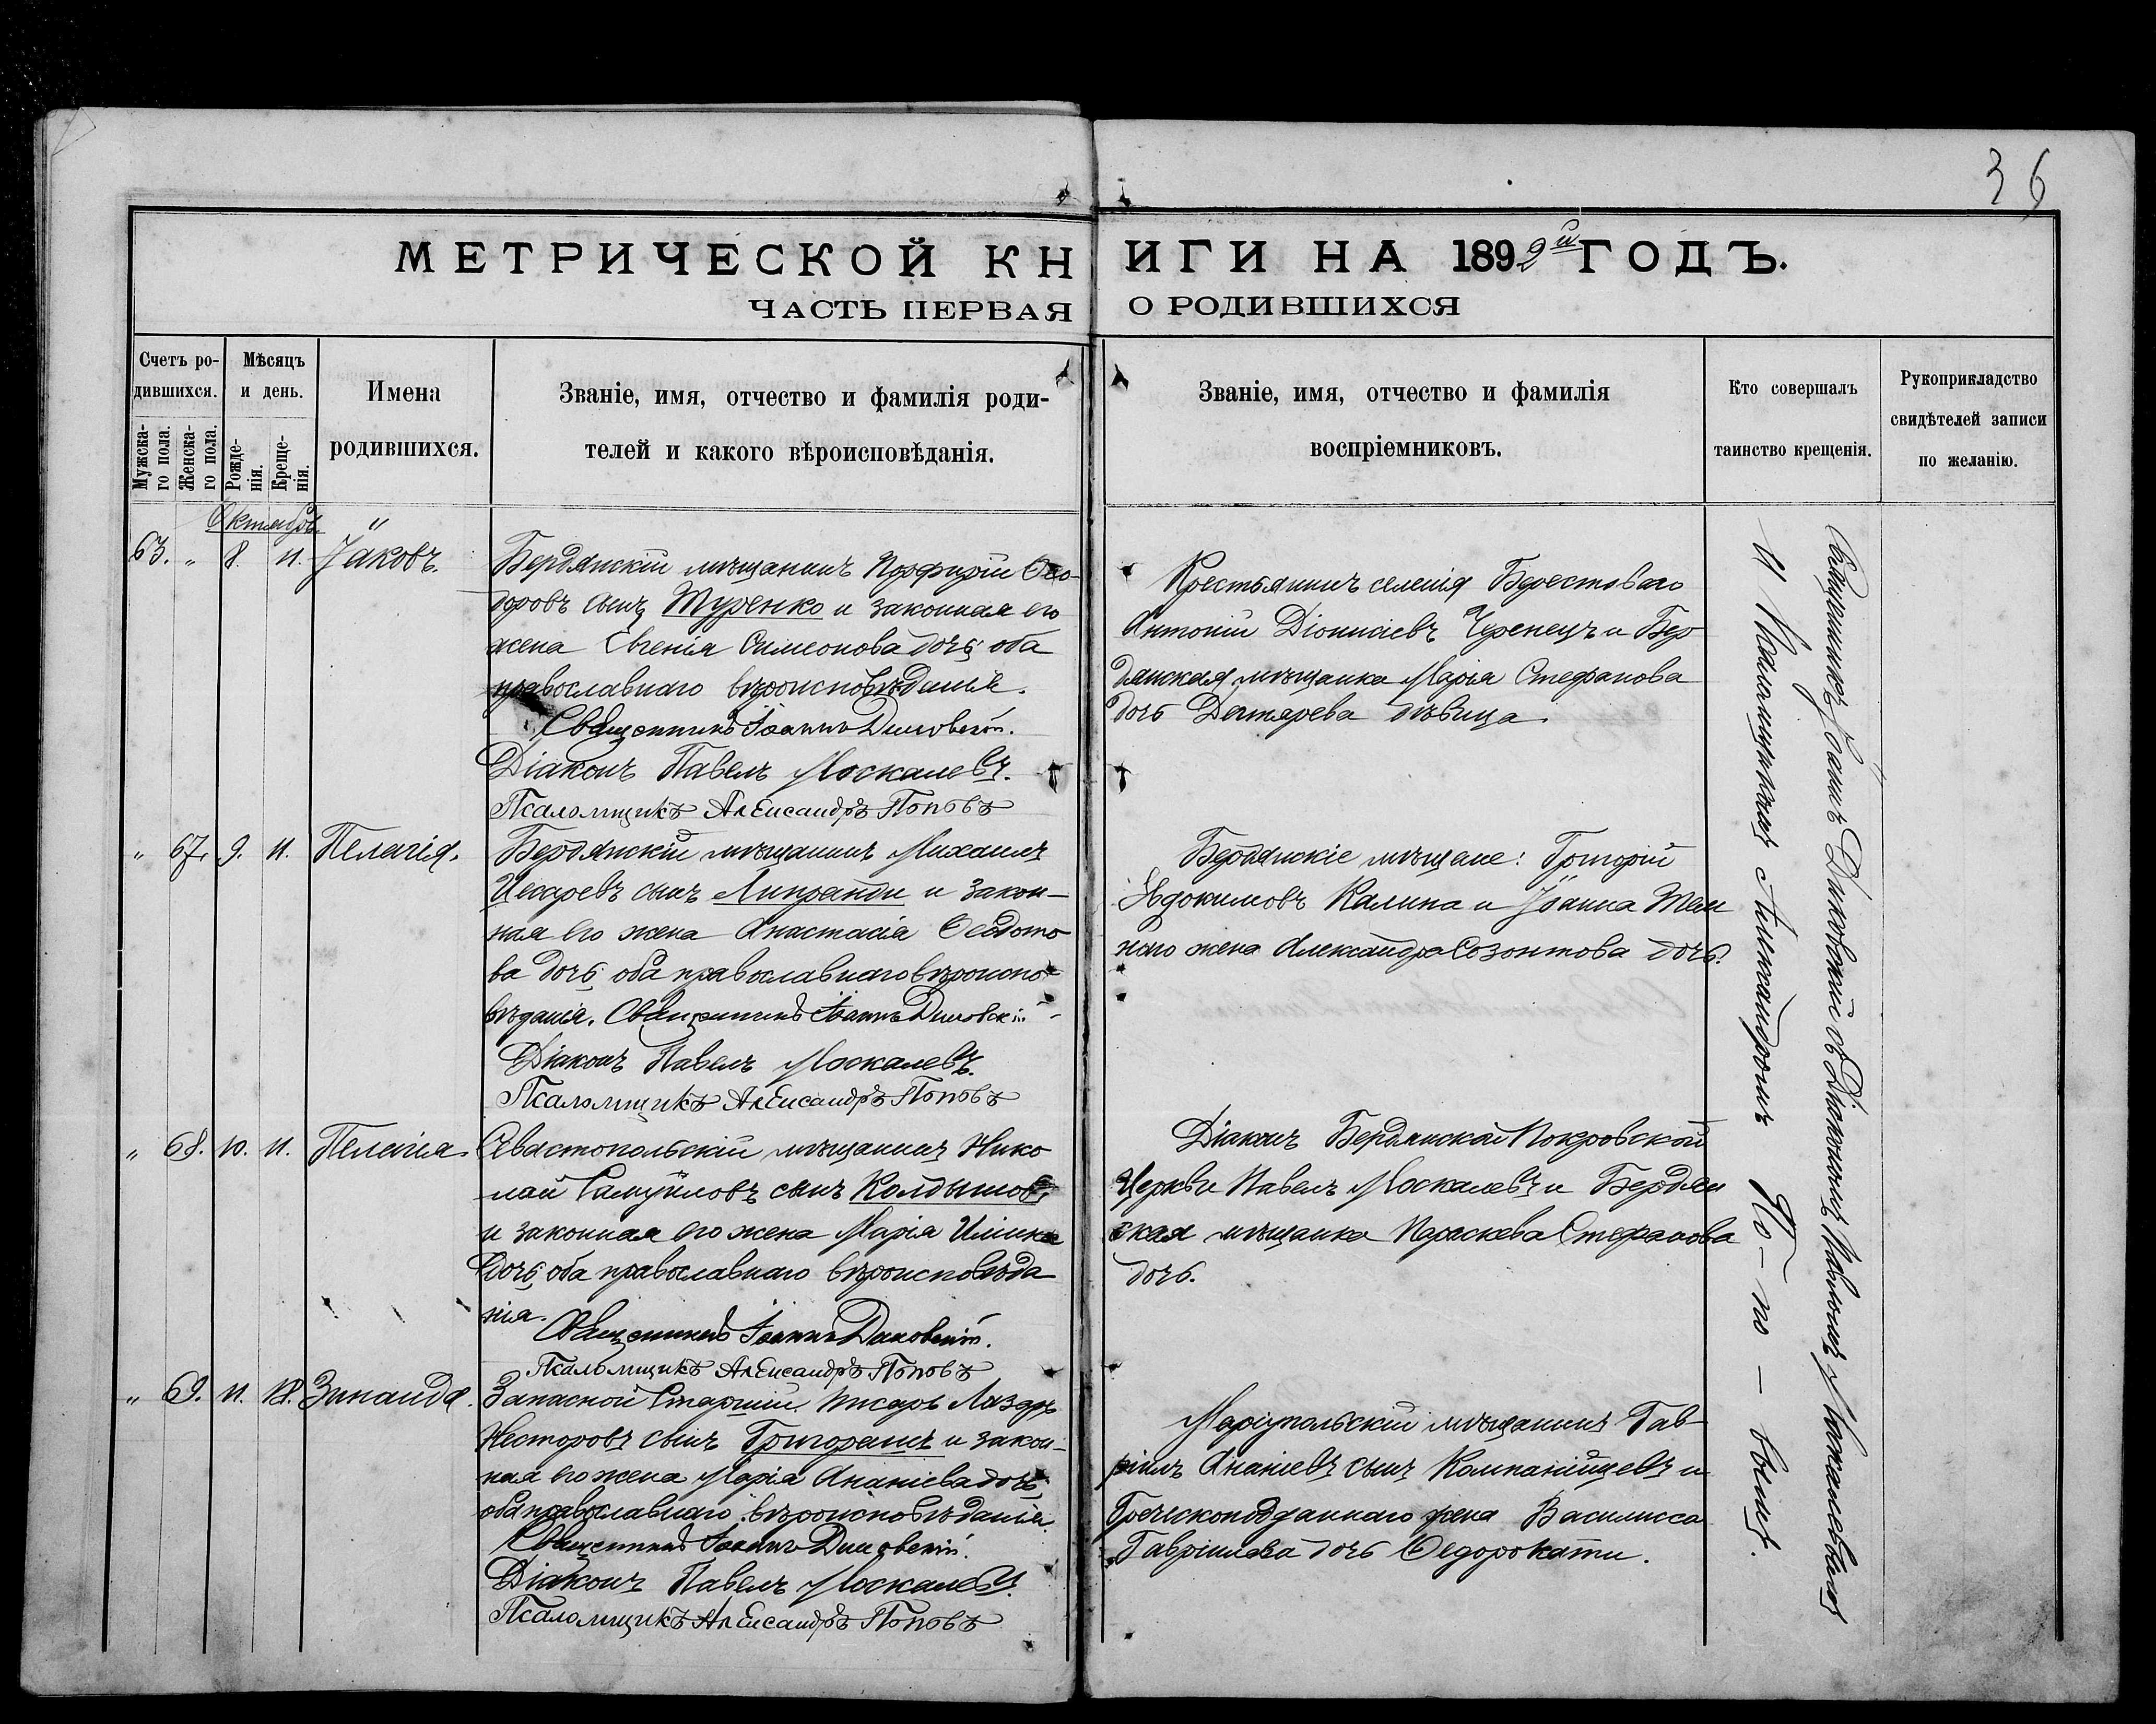 36
МЕТРИЧЕСКОЙ КНИГИ НА 1892й ГОДЪ.
ЧАСТЬ ПЕРВАЯ О РОДИВШИХСЯ
Счетъ ро-
дившихся.
Мужска-
го пола.
Женска-
го пола.
Мѣсяцъ
и день.
Рожде-
нія.
Креще-
нія.
Имена
родившихся.
Званіе, имя, отчество и фамилія роди-
телей и какого вѣроисповѣданія.
Званіе, имя, отчество и фамилія
воспріемниковъ.
Кто совершалъ
таинство крещенія.
Рукоприкладство
свидѣтелей записи
по желанію.
Октябрь
63. " 8. 11. Іаковъ.
Бердянскій мѣщанинъ Порфирій Ѳео-
доровъ сынъ Туренко и законная его
жена Евгенія Симеонова дочь; оба
православнаго вѣроисповѣданія.
Священникъ Іоаннъ Диковскій.
Діаконъ Павелъ Москалевъ.
Псаломщикъ Александръ Поповъ
Крестьянинъ селенія Берестоваго
Антоній Діонисіевъ Черенецъ и Бер
дянская мѣщанка Марія Стефанова
дочь Дегтярева дѣвица.
" 67. 9. 11. Пелагія.
Бердянскій мѣщанинъ Михаилъ
Цезаревъ сынъ Липранди и закон-
ная его жена Анастасія Ѳеодото
ва дочь; оба православнаго вѣроиспо-
вѣданія. Священникъ Іоаннъ Диковскій
Діаконъ Павелъ Москалевъ.
Псаломщикъ Александръ Поповъ
Бердянскіе мѣщане: Григорій
Евдокимовъ Калина и Іоанна
жена Александра Созонтова дочь.
" 68. 10. 11. Пелагія.
Севастопольскій мѣщанинъ Нико
лай Самуиловъ сынъ Колдышовъ
и законная его жена Марія Ильина
дочь; оба православнаго вѣроисповѣда
нія.
Священникъ Іоаннъ Диковскій.
Псаломщикъ Александръ Поповъ
Діаконъ Бердянской Покровской
Церкви Павелъ Москалевъ и Бердян
ская мѣщанка Параскева Стефанова
дочь.
" 69. 11. 18. Зинаида.
Запасной Старшій писарь Лазарь
Несторовъ сынъ Григорашъ и закон-
ная его жена Марія Ананіева дочь;
оба православнаго вѣроисповѣданія.
Священникъ Іоаннъ Диковскій.
Діаконъ Павелъ Москалевъ.
Псаломщикъ Александръ Поповъ
Маріупольскій мѣщанинъ Гав-
ріилъ Ананіевъ сынъ Компанійцевъ и
Греческоподданнаго жена Василисса
Гавріилова дочь Сидорокати.
Священникъ Іоаннъ Диковскій съ Діакономъ Павломъ Москалевымъ
и Псаломщикомъ Александромъ По-по-вымъ.